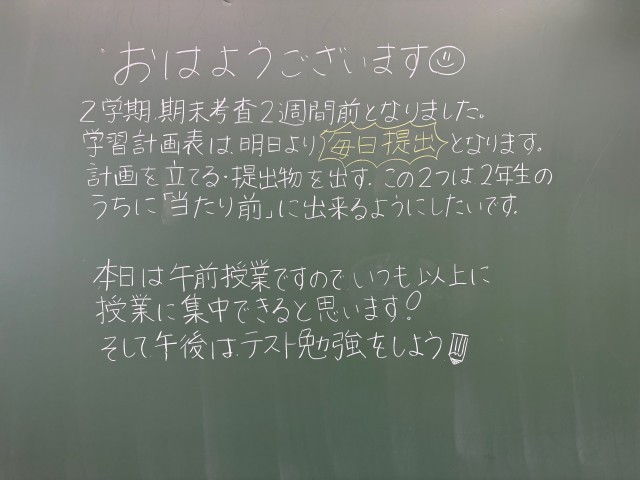 おはようございます
2学期、期末考査2週間前となりました。
学習計画表は、明日より毎日提出となります。
計画を立てる・提出物を出す、この2つは2年生の
うちに「当たり前」に出来るようにしたいです。
本日は午前授業ですのでいつも以上に
授業に集中できると思います!
そして、午後は、テスト勉強をしよう